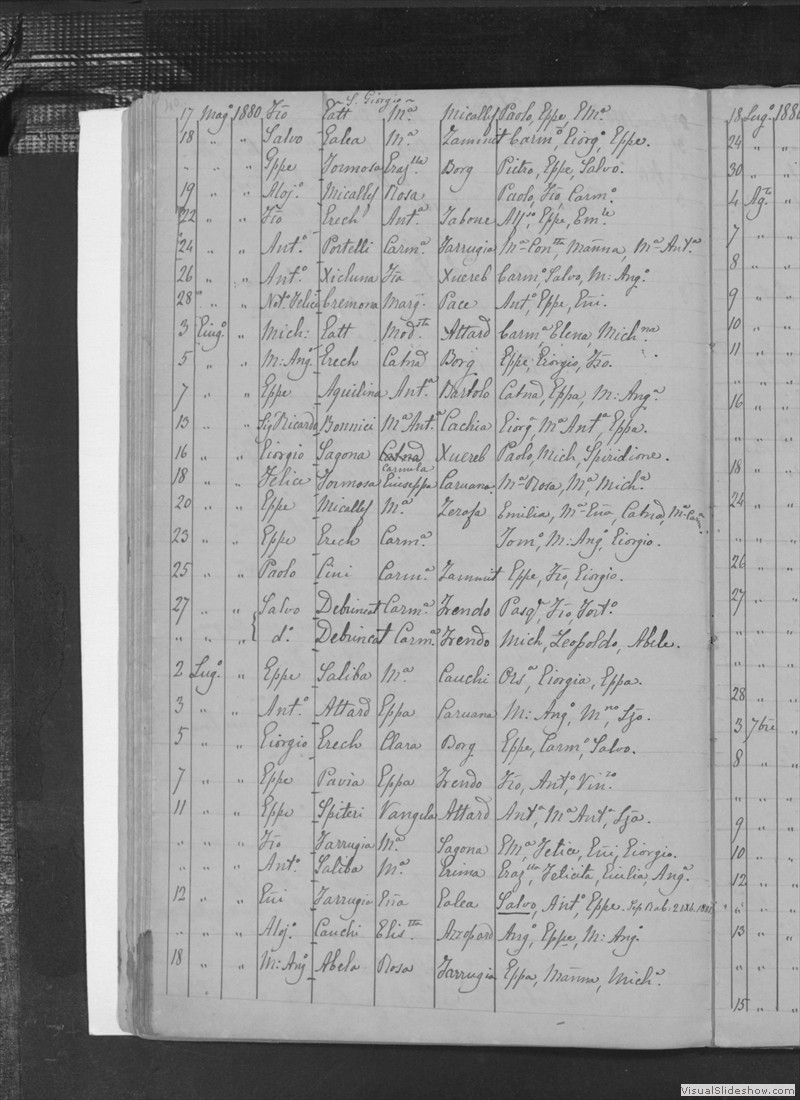 S. Giorgio
17 Mag.o 1880 Fco Tatt M.a Micallef Paolo, Eppe, Em.a
18 " " Salvo Galea M.a Zammit Carm.o Giorg.o, Eppe.
" " " Gppe Formosa Graz.lla Borg Pietro, Eppe, Salvo.
19 " " Aloj.o Micallef Rosa Paolo, Fco, Carm.o
22 " " Fco Grech Ant.a Tabone Eppe, Em.le
24 " " Ant.o Portelli Carm.a Farrugia M.a Con.tta, Marina, M.a Ant.a
26 " " Ant.o Xicluna Fca Xuereb Carm.o, Salvo, M: Ang.o
28 " " Not.o Felice Cremona Marg. Pace Ant.o, Eppe,
3 Giug.o " Mich: Tatt Mod.tta Attard Carm.a Elena, Mich.na
5 " " M: Ang.o Grech Catnā Borg Eppe, Giorgio, Fco.
7 " " Eppe Aquilina Ant.a Bartolo Catnā, Eppa, M: Ang.a
13 " " Sig.r Ricardo Bonnici M.a Ant.a Cachia Giorg.a M.a Ant.a Eppa.
16 " " Giorgio Sagona Catnā Carmela Xuereb Paolo, Mich, Spiridione.
18 " " Felice Formosa Giuseppa Caruana M.a Rosa, M.a, Mich.a
20 " " Eppe Micallef M.a Zerafa Emilia, M.a Catnā, M.a Car.a
23 " " Eppe Grech Carm.a Tom.o, M: Ang.o, Giorgio.
25 " " Paolo Cini Carm.a Zammit Eppe, Fco, Giorgio.
27 " " Salvo Debrincat Carm.a Frendo Pasq.e, Fco, Fort.o
" " " d.o Debrincat Carm.a Frendo Mich, Leopoldo, Abele.
2 Lug.o " Eppe Saliba M.a Cauchi Ors.a, Giorgia, Eppa.
3 " " Ant.o Attard Eppa Caruana M: Ang.o, M.no, Lzo.
5 " " Giorgio Grech Clara Borg Eppe, Carm.o, Salvo.
7 " " Eppe Pavia Eppa Frendo Fco, Ant.o Vin.zo
11 " " Eppe Spiteri Vangela Attard Ant.a, M.a Ant.a, Lza.
" " " Fco Farrugia M.a Sagona Em.a, Felice, Giorgio.
" " " Ant.o Saliba M.a Prima Graz.lla, Felicita, Giulia, Ang.a
12 " " Farrugia Galea Salvo, Ant.o, Eppe.
" " " Aloj.o Cauchi Elis.tta Azzopard Ang.o, Eppe, M: Ang.o
18 " " M: Ang.o Abela Rosa Farrugia Eppa, Marina, Mich.a
18 Lug.o 188
24 " "
30 "
4 Ag.to "
7 " "
8 " "
9 " "
10 " "
11 " "
" "
16 " "
"
18 "
24 " "
26 " "
27 " "
" "
28 "
3 7bre "
8 " "
" "
9 " "
10 " "
12 " "
" "
13 " "
" "
15 " "
VisualSlideshow.com